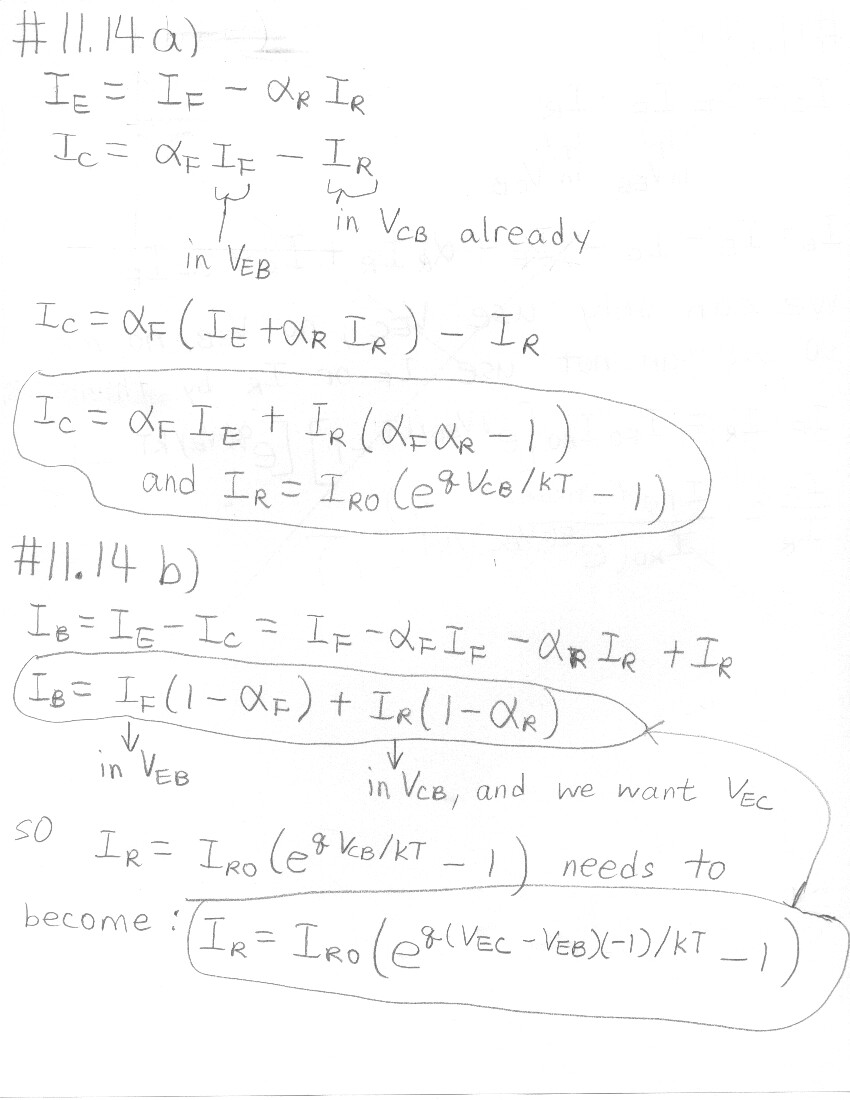 #11.14 a)
I_E = I_F - α_R I_R
I_C = α_F I_F - I_R
in V_CB already
in V_EB
I_C = α_F (I_E + α_R I_R) - I_R
I_C = α_F I_E + I_R (α_F α_R - 1)
and I_R = I_RO (e^{qV_CB/kT} - 1)
#11.14 b)
I_B = I_E - I_C = I_F - α_F I_F - α_R I_R + I_R
I_B = I_F (1 - α_F) + I_R (1 - α_R)
in V_EB
in V_CB, and we want V_EC
so I_R = I_RO (e^{qV_CB/kT} - 1) needs to
become: I_R = I_RO (e^{q(V_EC - V_EB)(-1)/kT} - 1)